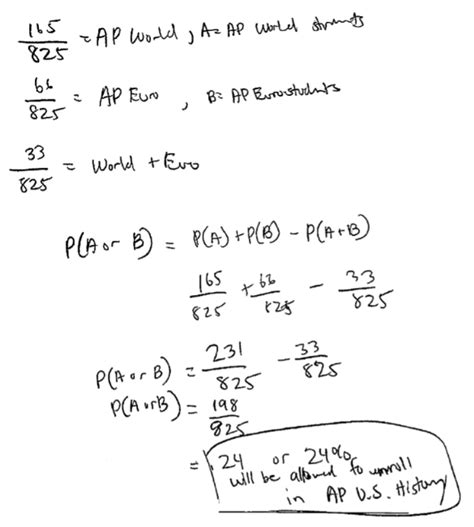 165/825 = AP World, A = AP World students
66/825 = AP Euro, B = AP Euro students
33/825 = World + Euro
P(A or B) = P(A) + P(B) - P(A+B)
165/825 + 66/825 - 33/825
P(A or B) = 231/825 - 33/825
P(A or B) = 198/825
= .24 or 24%
will be allowed to enroll
in AP U.S. History